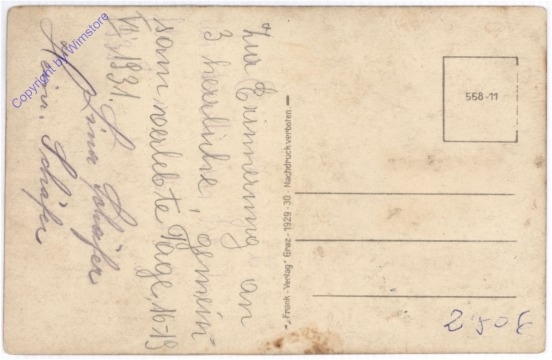 Zur Erinnerung an
3 herrliche, gemein-
sam verlebte Tage, 16-19
1931.
Lina Schäfer
Hein. Schäfer
"Frank-Verlag" Graz - 1929-30 - Nachdruck verboten
558-11
2508
Copyright by Wimstore